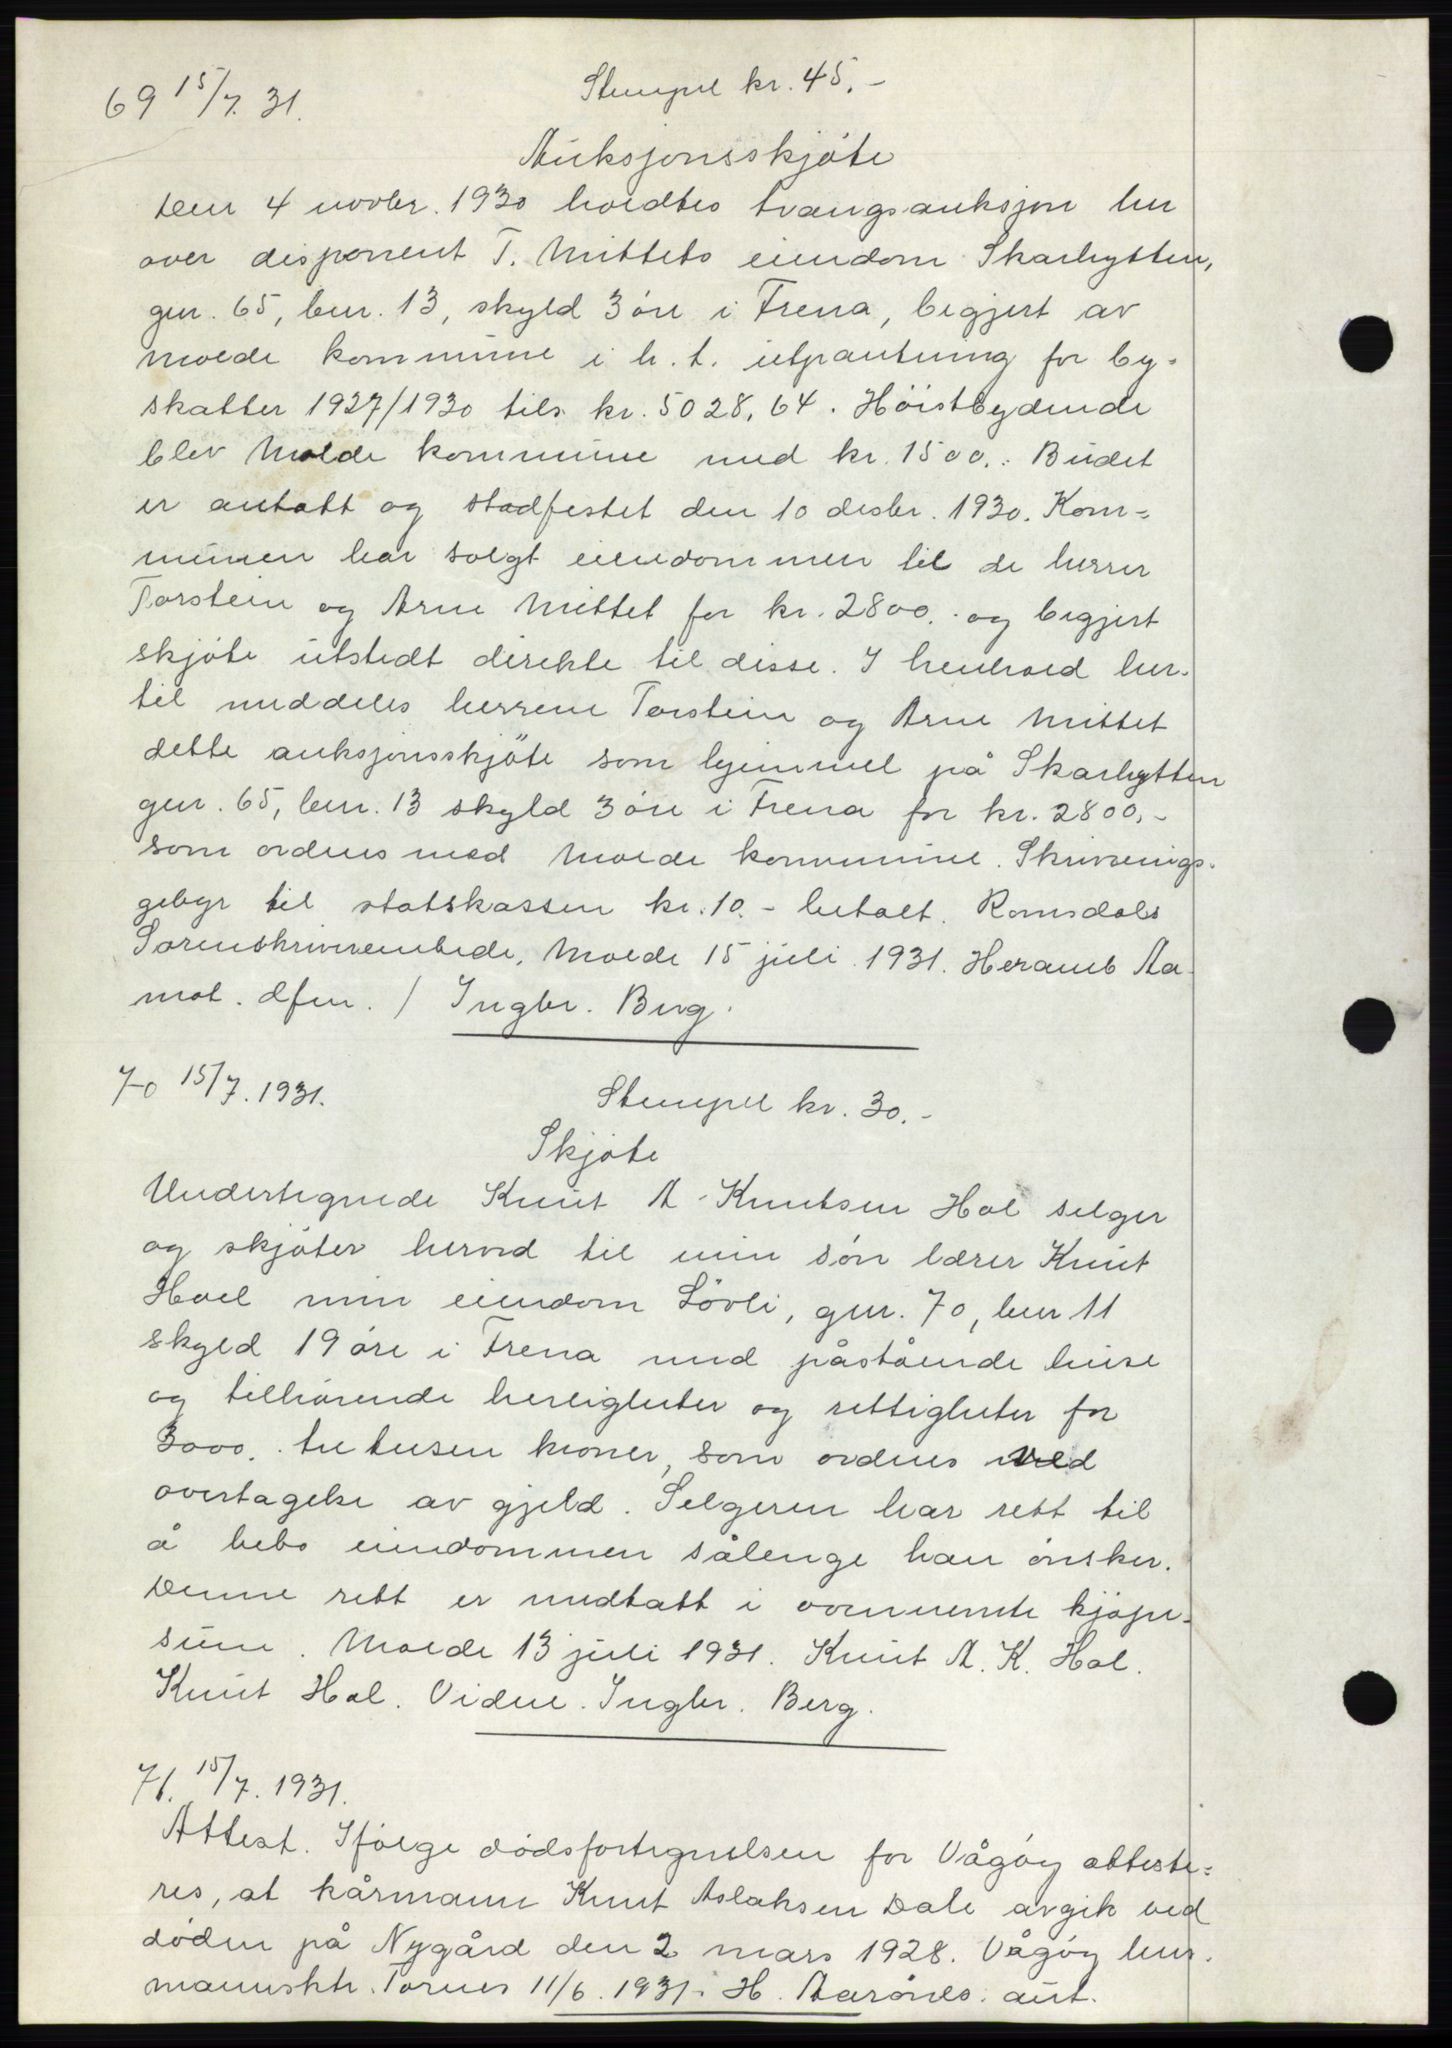 69 15/7. 31.
Stempel kr. 45.-
Auksjonsskjøte
Den 4 novbr. 1930 holdtes tvangsauksjon her
over disponent T. Mittets eiendom Skarhytten,
gnr. 65, bnr. 13, skyld 3 öre i Frena, begjert av
Molde kommune i h. t. utpantning for by-
skatter 1927/1930 tils. kr. 5028,64. Höistbydende
blev Molde kommune med kr. 1500.- Budet
er antatt og stadfestet den 10 desbr. 1930. Kom-
munen har solgt eiendommen til de herrer
Torstein og Arne Mittet for kr. 2800.- og begjert
skjöte utstedt direkte til disse. I henhold her-
til meddeles herrene Torstein og Arne Mittet
dette auksjonsskjöte som hjemmel på Skarhytten
gnr. 65, bnr. 13 skyld 3 öre i Frena for kr. 2800,-
som ordnes med Molde kommune. Skrivnings-
gebyr til statskassen kr. 10.- betalt. Romsdals
Sorenskriverembede, Molde 15 juli 1931. Heramb Aa-
mot. dfm. / Ingbr. Berg.
70 15/7. 1931.
Stempel kr. 30.-
Skjöte
Undertegnede Knut A. Knutsen Hol selger
og skjöter herved til min sön lærer Knut
Hoel min eiendom Lövli, gnr. 70, bnr 11
skyld 19 öre i Frena med påstående huse
og tilhörende herligheter og rettigheter for
3000.- tre tusen kroner, som ordnes ved
overtagelse av gjeld. Selgeren har rett til
å bebo eiendommen sålenge han önsker.
Denne rett er medtatt i ovennevnte kjöpe-
sum. Molde 13 juli 1931. Knut A. K. Hol.
Knut Hol. Vidne. Ingbr. Berg.
71. 15/7. 1931.
Attest. Ifölge dödsfortegnelsen for Vågöy atteste-
res, at kårmann Knut Aslaksen Dale avgik ved
döden på Nygård den 2 mars 1928. Vågöy lens-
mannsktr. Tornes 11/6. 1931. H. Aarönes. aut.